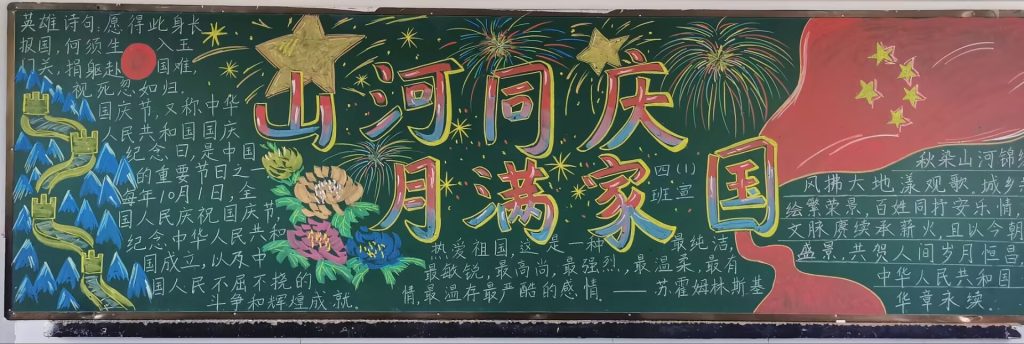 英雄诗句,愿得此身长
报国,何须生入玉
门关,捐躯赴国难,
视死忽如归.
国庆节,又称中华
人民共和国国庆
纪念日,是中国
的重要节日之一
每年10月1日,全
国人民庆祝国庆节,
纪念中华人民共和
国成立,以及中
国人民不屈不挠的
斗争和辉煌成就.
山河同庆
月满家国
四(1)
班宣
热爱祖国,这是一种最纯洁,
最敏锐,最高尚,最强烈,最温柔,最有
情,最温存最严酷的感情——苏霍姆林斯基
秋染山河锦绣
风拂大地漾观歌,城乡
绘繁荣景,百姓同抒安乐情,
文脉赓续承薪火,且以今朝
盛景,共贺人间岁月恒昌
中华人民共和国
华章永续.